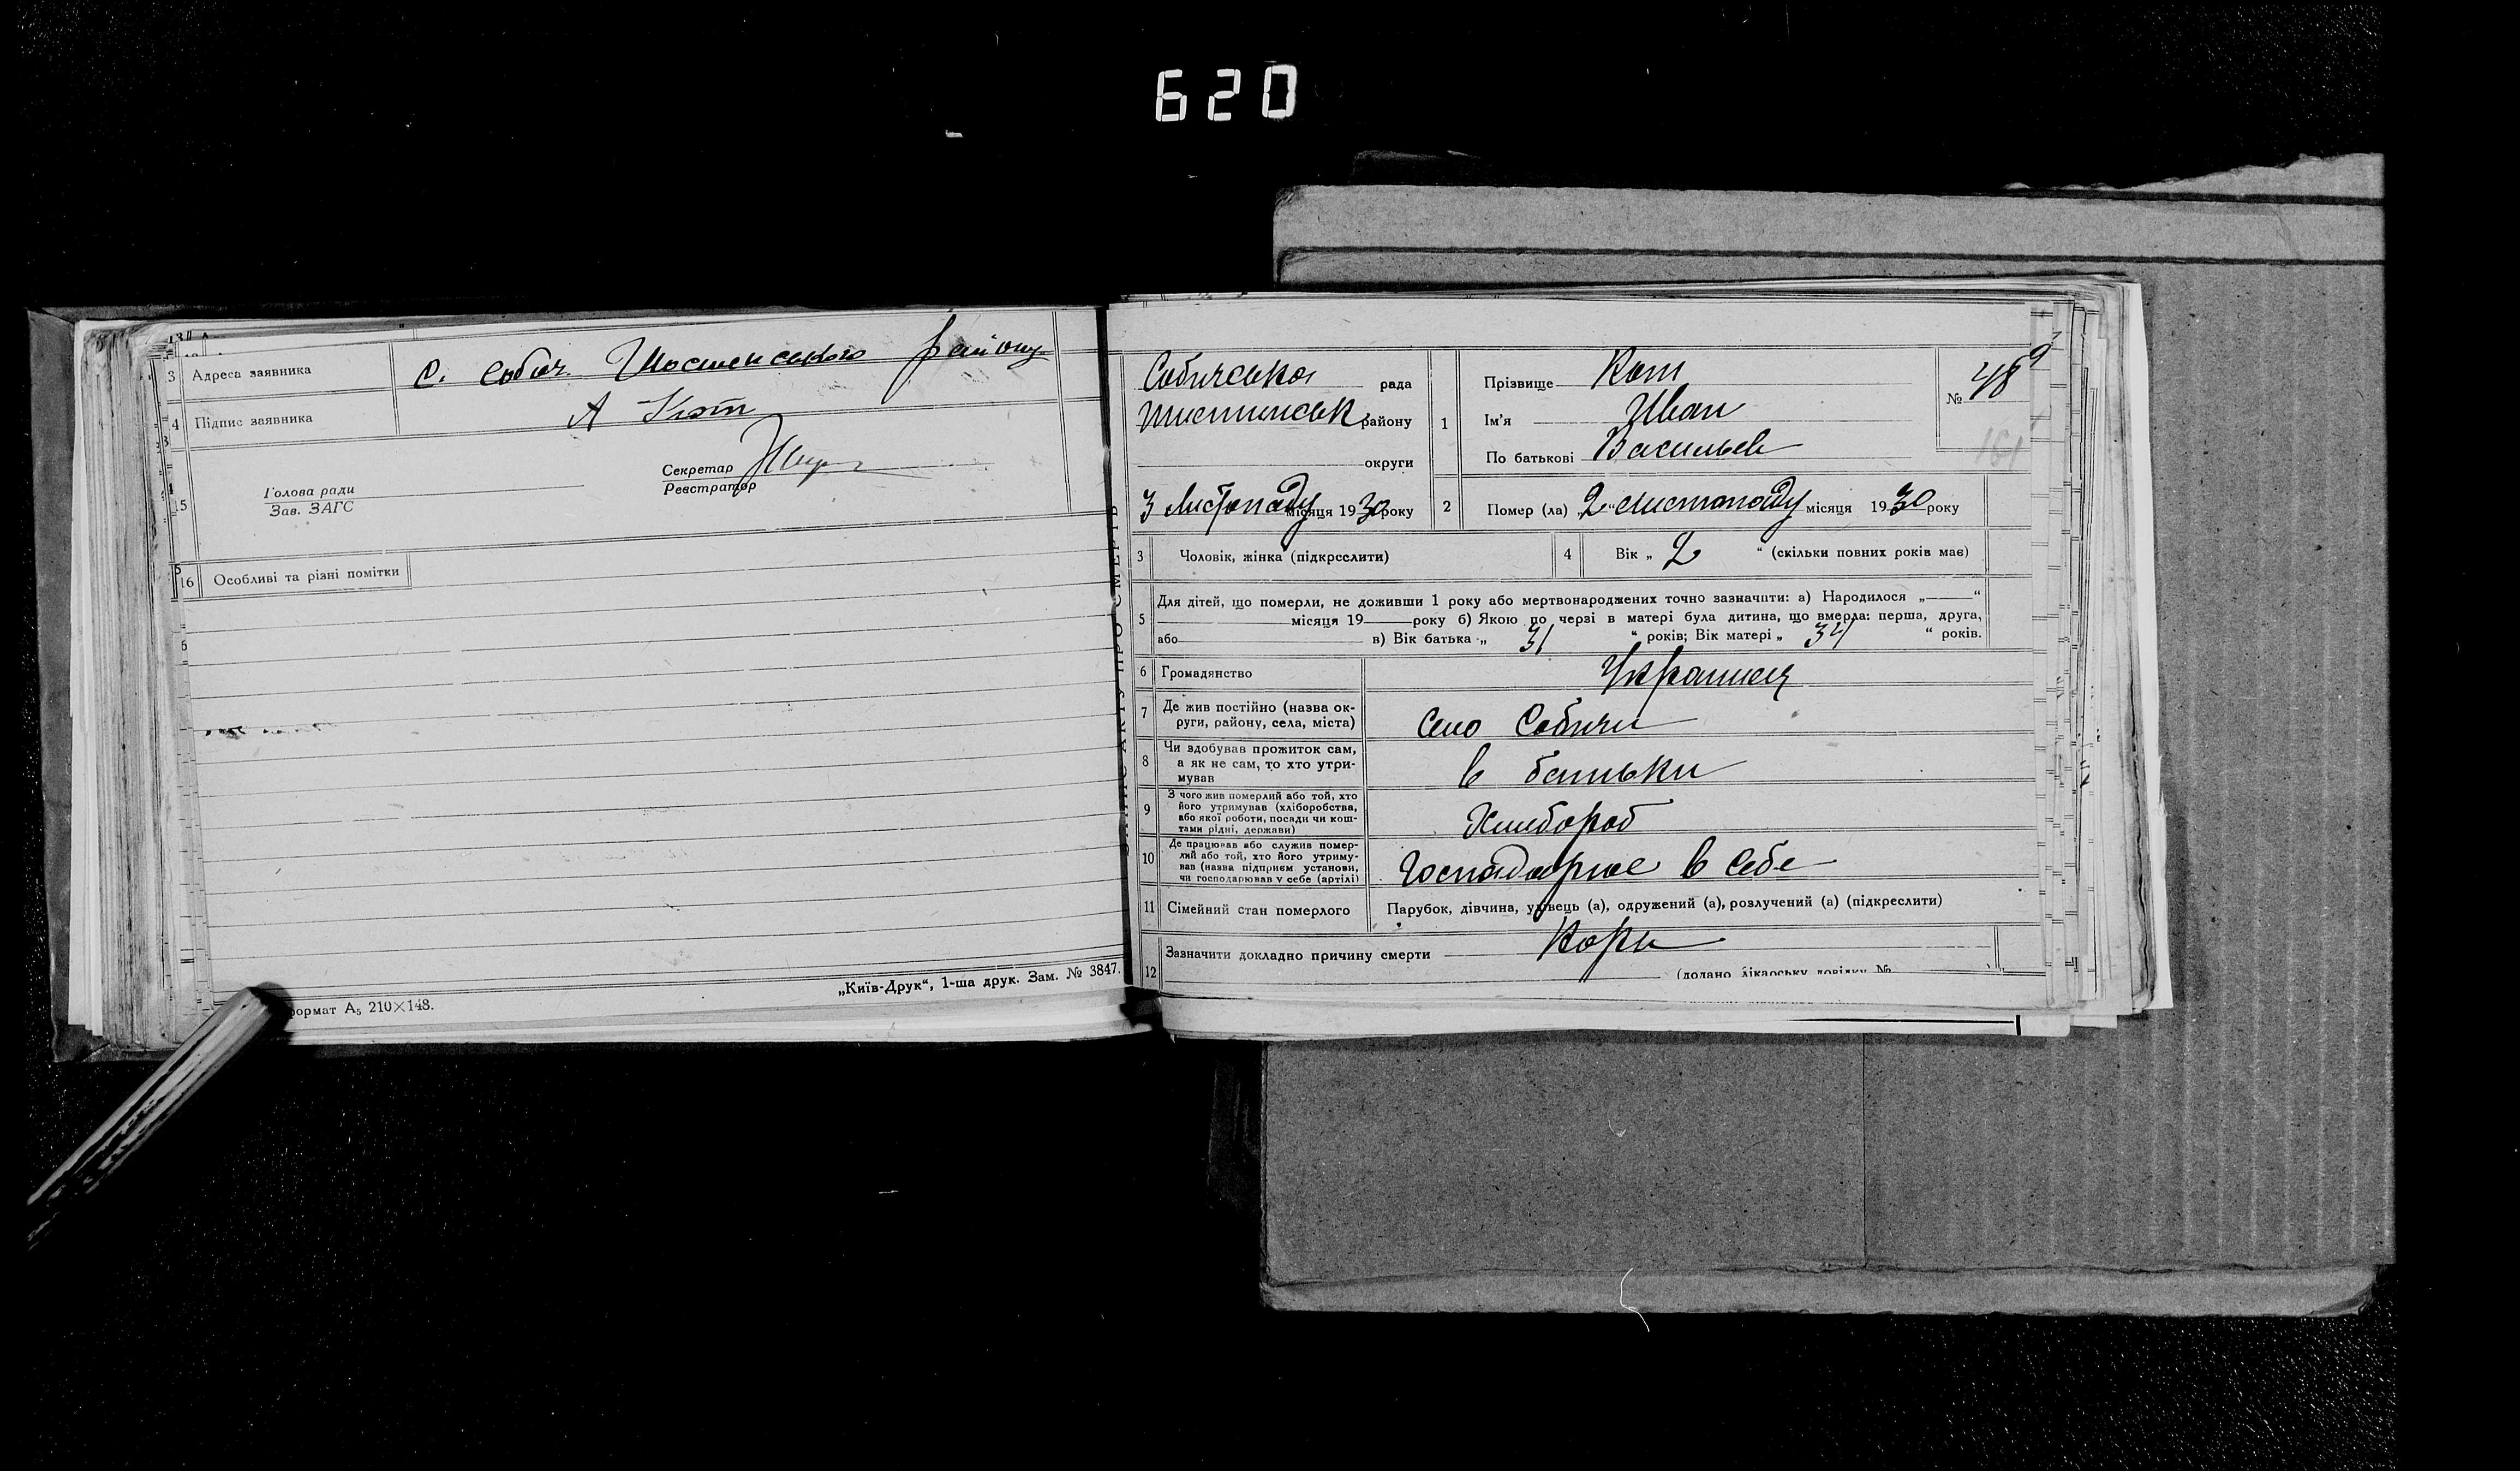 620
3 Адреса заявника с. Собич Шостенського району
4 Підпис заявника А Кот
5 Голова ради
Зав. ЗАГС
Секретар
Реєстратор
16 Особливі та різні помітки
формат А5 210×148.
„Київ-Друк“, 1-ша друк. Зам. № 3847.
Собичська рада
района
округи
3 Листопаду місяця 1930 року
1 Прізвище Кот
Ім'я Иван
По батькові Васильев
№ 48
161
2 Помер (ла) „2“ листопаду місяця 1930 року
3 Чоловік, жінка (підкреслити)
4 Вік „ 2 “ (скільки повних років має)
5 Для дітей, що померли, не доживши 1 року або мертвонароджених точно зазначити: а) Народилося „ “
місяця 19 року б) Якою по черзі в матері була дитина, що вмерла: перша, друга,
або в) Вік батька „ 31 “ років; Вік матері „ 34 “ років.
6 Громадянство
7 Де жив постійно (назва ок-
руги, району, села, міста) село Собичи
8 Чи здобував прожиток сам,
а як не сам, то хто утри-
мував в батьки
9 З чого жив померлий або той, хто
його утримував (хліборобства,
або якої роботи, посади чи кош-
тами рідні, держави) Хлибороб
10 Де працював або служив помер-
лий або той, хто його утриму-
вав (назва підприєм. установи,
чи господарював у себе (артілі) Господарює в себе
11 Сімейний стан померлого Парубок, дівчина, удівець (а), одружений (а), розлучений (а) (підкреслити)
12 Зазначити докладно причину смерти Кори
(додано лікарську довідку №